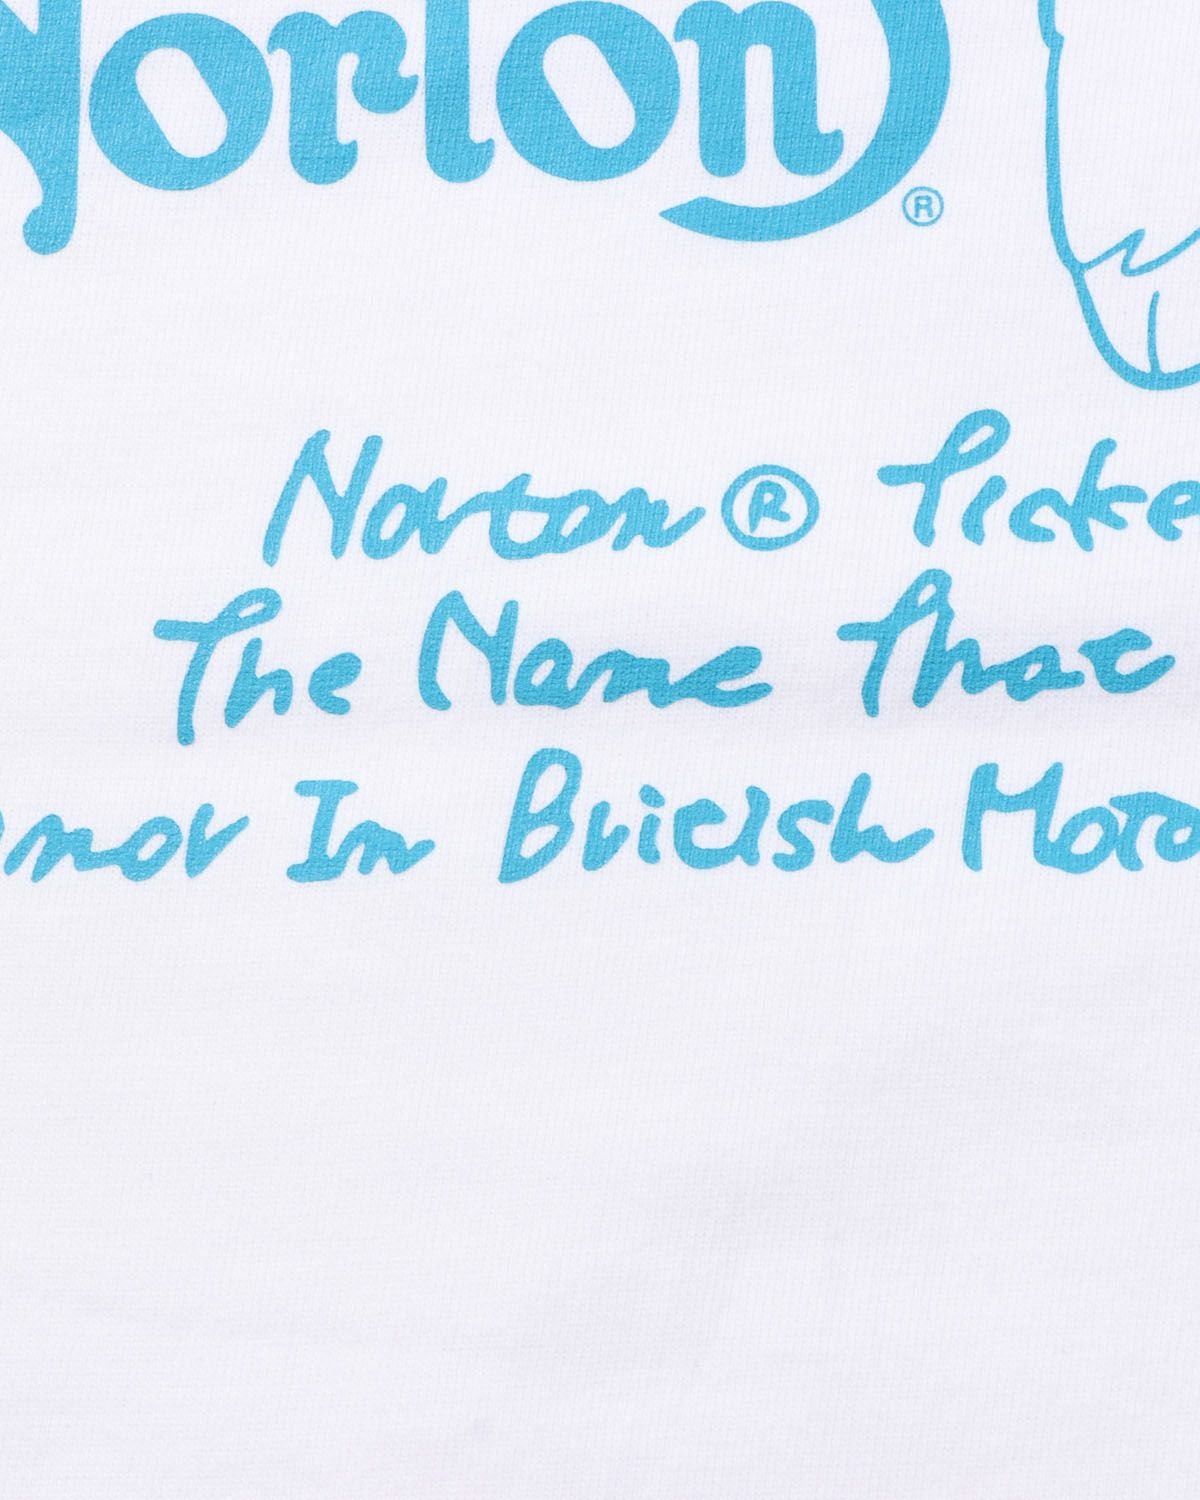 Norton®
Norton® Ticke
The Name That
onor In British Moto